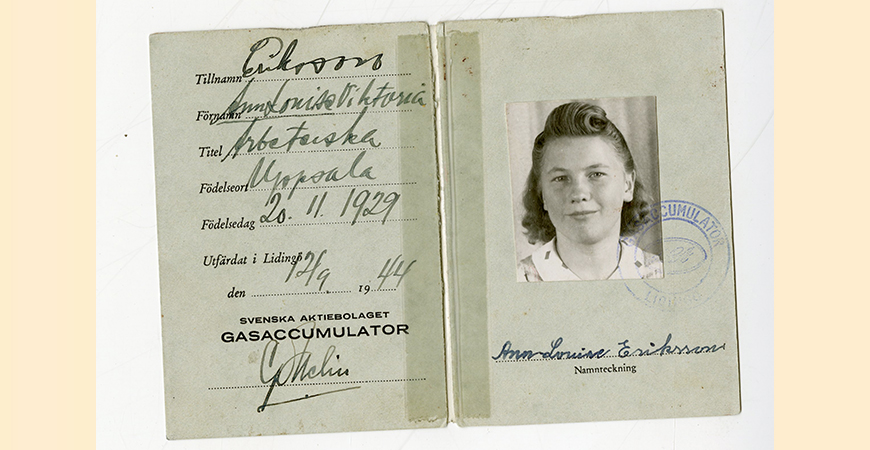 Tillnamn Eriksson
Förnamn Ann-Louise Viktoria
Titel Arbeterska
Födelseort Uppsala
Födelsedag 20. 11. 1929
Utfärdat i Lidingö
den 12/9 1944
SVENSKA AKTIEBOLAGET
GASACCUMULATOR
GASACCUMULATOR
LIDINGÖ
Ann-Louise Eriksson
Namnteckning